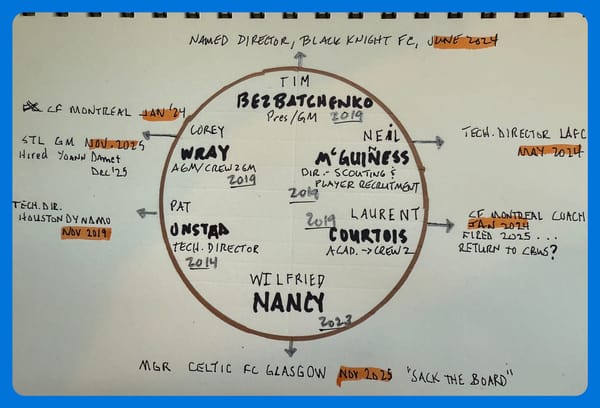 NAMED DIRECTOR, BLACK KNIGHT FC, JUNE 2024
TIM
BEZBATCHENKO
Pres/GM 2019
CF MONTREAL JAN '24
STL GM NOV. 2025
Hired YOANN Damet
Dec '25
COREY
WRAY
AGM/CREW 2 GM
2019
NEIL
McGUIÑESS
DIR. - SCOUTING &
PLAYER RECRUITMENT
2019
TECH. DIRECTOR LAFC
MAY 2024
TECH. DIR.
HOUSTON DYNAMO
NOV 2019
PAT
ONSTAD
TECH. DIRECTOR
2014
2019 LAURENT
COURTOIS
ACAD. → CREW 2
CF MONTREAL COACH
JAN 2024
FIRED 2025 ...
RETURN TO CBUS?
WILFRIED
NANCY
2023
MGR CELTIC FC GLASGOW NOV 2025 "SACK THE BOARD"